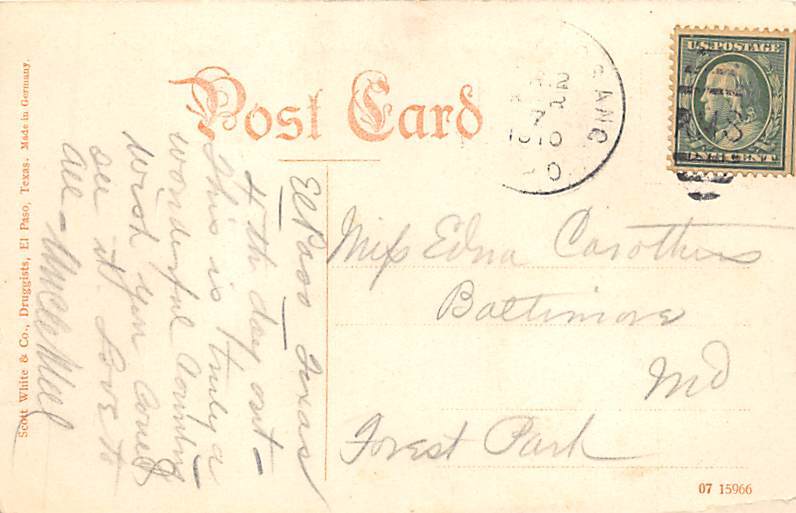 Post Card
U.S. POSTAGE
ONE CENT
2
7
1910
R.M.S.
El Paso Texas
4th day out –
This is truly a
wonderful Country
Wish you could
see it Love to
all – Uncle
Miss Edna Carothers
Baltimore
Md
Forest Park
Scott White & Co., Druggists, El Paso, Texas. Made in Germany.
07 15966